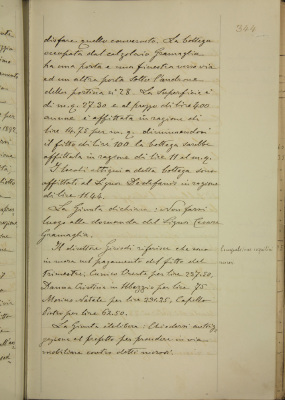 344
disfare quelle convenuto. La bottega
occupata dal calzolaio Gramaglia
ha una porta e una finestra verso via
ed un'altra porta sotto l'androne
della portina n° 28. La superficie è
di m.q. 27.30 e al prezzo di lire 400
annue è affittata in ragione di
lire 14.72 per m.q. diminuendone
il fitto di lire 100 la bottega sarebbe
affittata in ragione di lire 11 al m.q.
I locali attigui a detta bottega sono
affittati al Signor Destefanis in ragione
di lire 11.44.
La Giunta dichiara: Non farsi
luogo alla domanda del Signor Cesare
Gramaglia.
Il direttore Gnoli riferisce che sono
in mora nel pagamento del fitto del
trimestre, per lire 227.50,
Danna Cristina in per lire 75
Morino Natale per lire 231.25, Capello
Pietro per lire 62.50.
La Giunta delibera: Chiedersi autoriz-
zazione al prefetto per procedere in via
mobiliare contro detti morosi.
inquilini
morosi